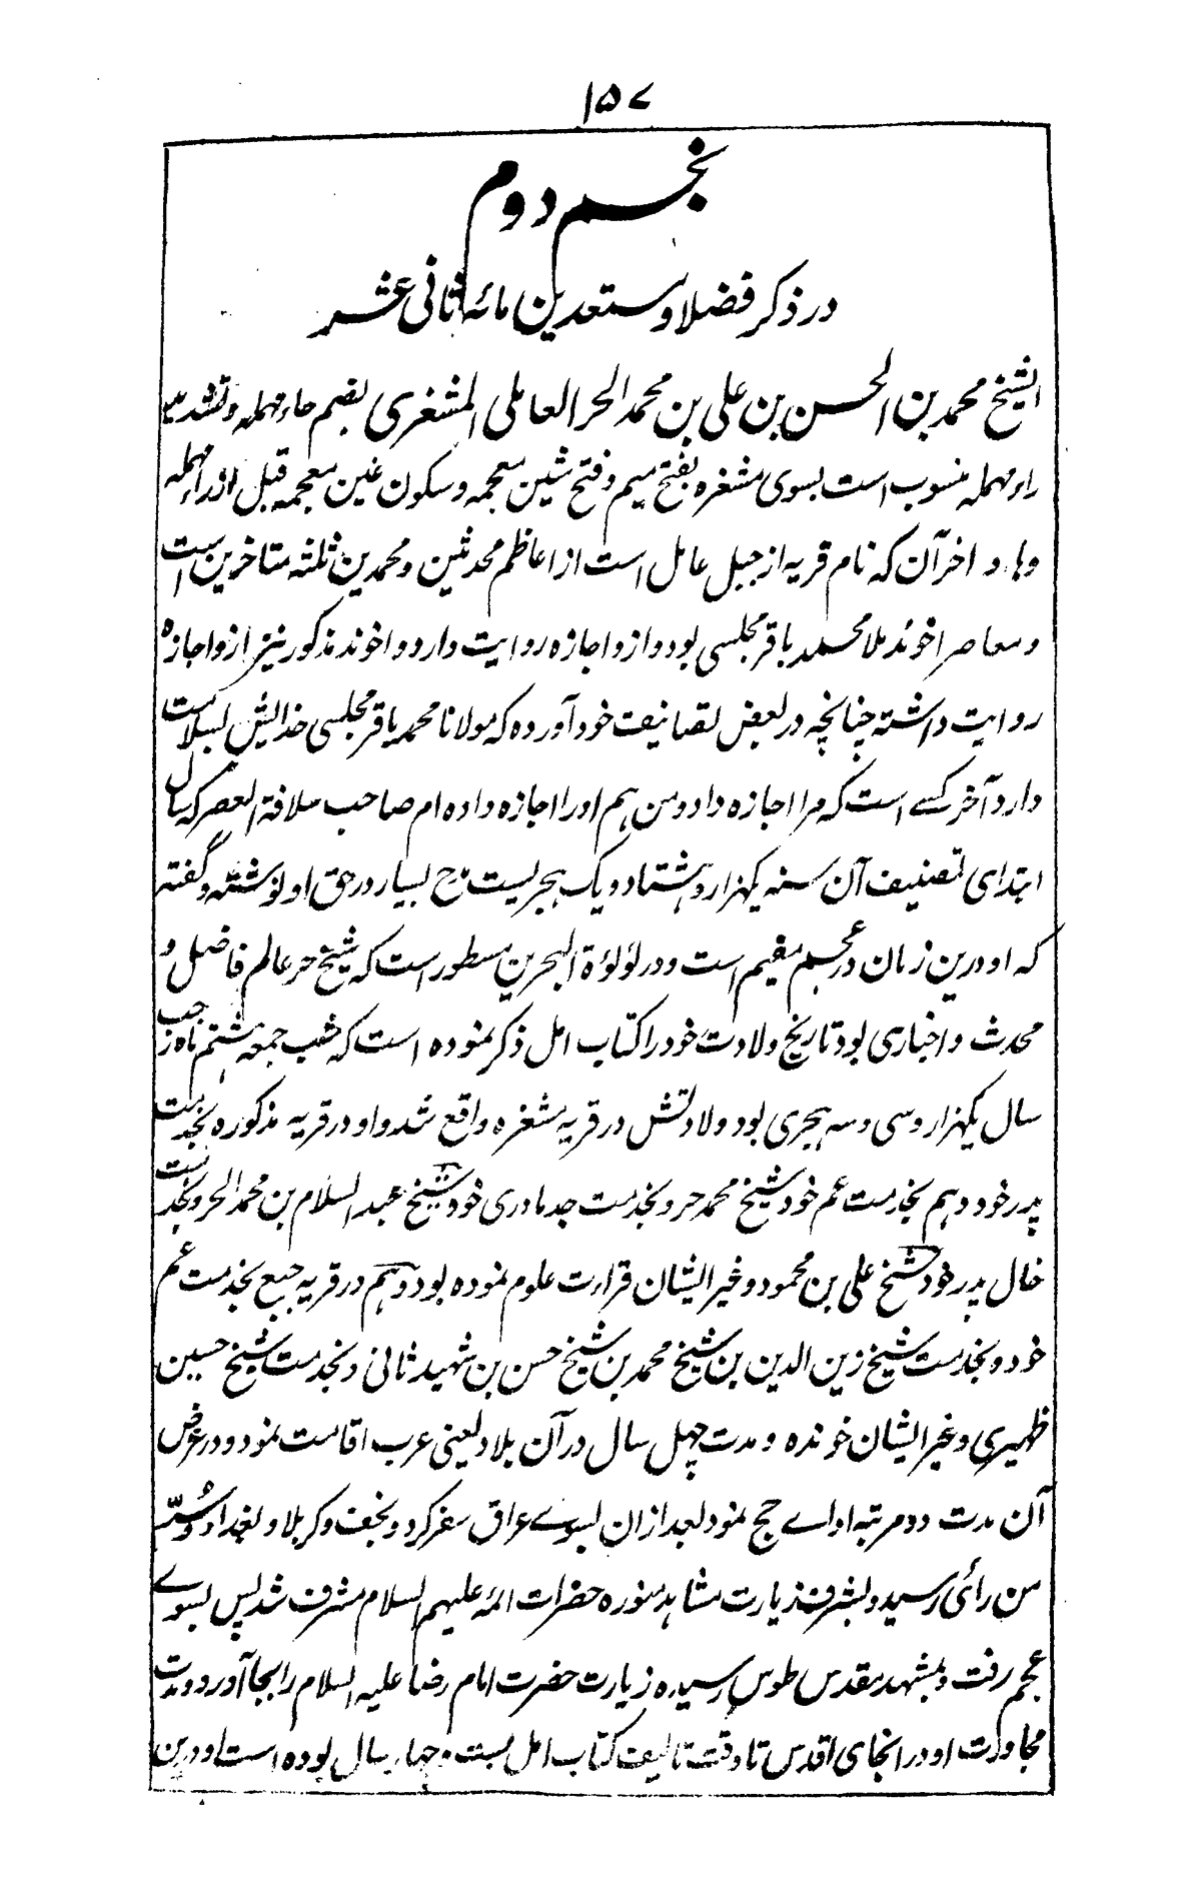 ۱۵۷
نجم دوم
در ذکر فضلا و مستعدین مائه ثانی عشر
الشیخ محمد بن الحسن بن علی بن محمد الحر العاملی المشغری بضم حاء مهمله و تشدید
راء مهمله منسوب است بسوی مشغره بفتح میم و فتح شین معجمه و سکون غین معجمه قبل از راء مهمله
وهاء در اخر آن که نام قریه از جبل عامل است از اعاظم محدثین و محمدین ثلثه متاخرین است
و معاصر اخوند ملا محمد باقر مجلسی بود و ازو اجازه روایت دارد و اخوند مذکور نیز ازو اجازه
روایت داشته چنانچه در بعض تصانیف خود آورده که مولانا محمد باقر مجلسی خدایش بسلامت
دارد آخر کسے است که مرا اجازه داد و من هم او را اجازه داده ام صاحب سلافة العصر که سال
ابتدای تصنیف آن سنه یکهزار و هشتاد و یک هجریست مدح بسیار در حق او نوشته و گفته
که او درین زمان در عجم مقیم است و در لؤلؤة البحرین مسطور است که شیخ حر عالم فاضل و
محدث و اخباری بود تاریخ ولادت خود را کتاب امل ذکر نموده است که شب جمعه هشتم ماه رجب
سال یکهزار و سی و سه هجری بود ولادتش در قریه مشغره واقع شد و او در قریه مذکوره بخدمت
پدر خود و هم بخدمت عم خود شیخ محمد حر و بخدمت جد مادری خود شیخ عبد السلام بن محمد الحر و بخدمت
خال پدر خود شیخ علی بن محمود و غیر ایشان قراءت علوم نموده بود و هم در قریه جبع بخدمت عم
خود و بخدمت شیخ زین الدین بن شیخ محمد بن شیخ حسن بن شهید ثانی و بخدمت شیخ حسین
ظهیری و غیر ایشان خوانده و مدت چهل سال در آن بلاد یعنی عرب اقامت نمود و در عرض
آن مدت دو مرتبه اداے حج نمود بعد ازان بسوے عراق سفر کرد و بنجف و کربلا و بغداد و سُرّ
من رائی رسید و بشرف زیارت مشاهد منوره حضرات ائمه علیهم السلام مشرف شد پس بسوے
عجم رفت و بمشهد مقدس طوس رسیده زیارت حضرت امام رضا علیه السلام را بجا آورد و مدت
مجاورت او در انجای اقدس تا وقت تالیف کتاب امل بست و چهار سال بوده است و درین